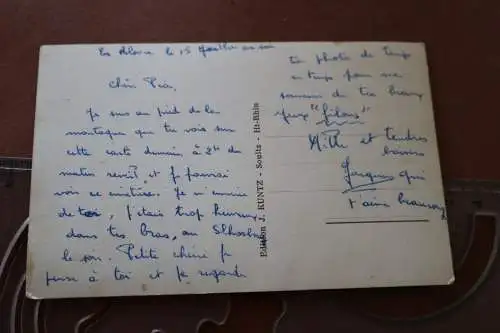 le 15 Juillet au soir
Chère Pia,
Je suis au pied de la
montagne que tu vois sur
cette carte demain à 2h du
matin réveil et je pourrai
voir ce cimetière. Je m'ennuie
de toi, j'étais trop heureux
dans tes bras, au
le soir. Petite chérie je
pense à toi et je regarde
ta photo de temps
en temps pour me
souvenir de tes beaux
yeux "filous"
et tendres
baisers
Jacques qui
t'aime beaucoup
Edition J. KUNTZ - Soultz - Ht-Rhin